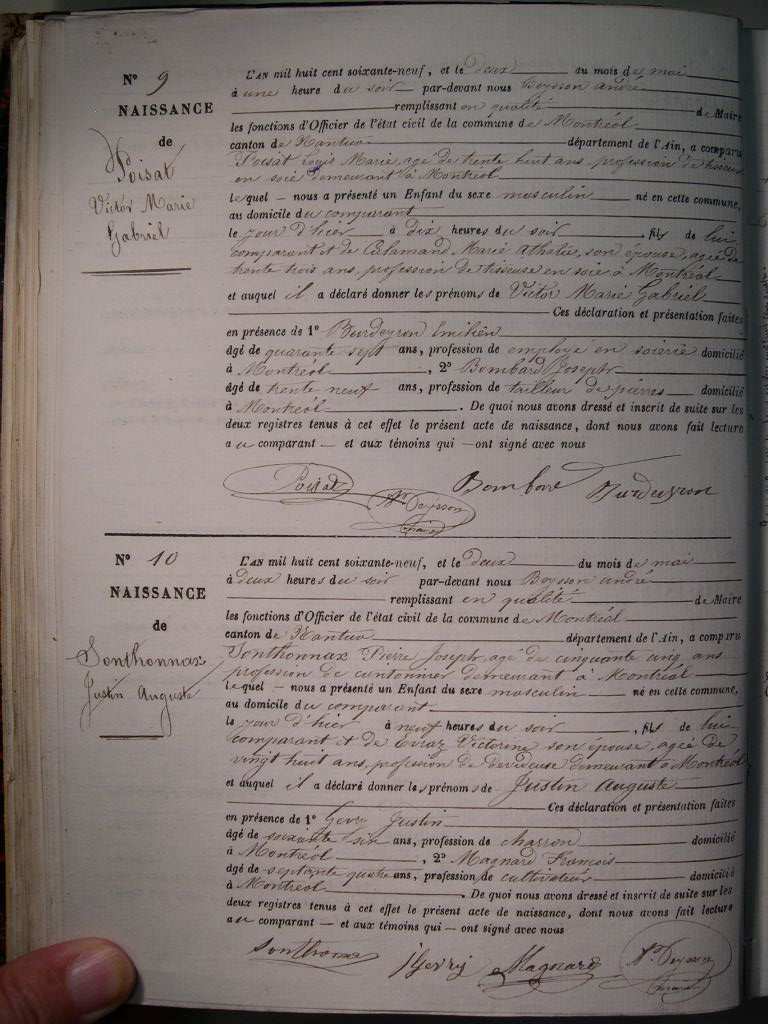 N° 9
NAISSANCE
de
Poisat
Victor Marie
Gabriel
L'AN mil huit cent soixante-neuf, et le deux du mois de mai
à une heure du soir par-devant nous Beysson andré
remplissant en qualité de Maire
les fonctions d'Officier de l'état civil de la commune de Montréal
canton de Nantua département de l'Ain, a comparu
Poisat Louis Marie, agé de trente huit ans, profession de tisseur
en soie demeurant à Montréal
lequel – nous a présenté un Enfant du sexe masculin né en cette commune,
au domicile du comparant
le jour d'hier à dix heures du soir, fils de lui
comparant et de Calamand Marie Athalie, son épouse, agée de
trente trois ans, profession de tisseuse en soie à Montréal
et auquel il a déclaré donner les prénoms de Victor Marie Gabriel
Ces déclaration et présentation faites
en présence de 1° Burdeyron Emilien
âgé de quarante sept ans, profession de employé en soierie domicilié
à Montréal, 2° Bombard Joseph
âgé de trente neuf ans, profession de tailleur de pierres domicilié
à Montréal. De quoi nous avons dressé et inscrit de suite sur les
deux registres tenus à cet effet le présent acte de naissance, dont nous avons fait lecture
au comparant – et aux témoins qui – ont signé avec nous
Poisat Bombard Burdeyron
Beysson
N° 10
NAISSANCE
de
Sonthonnax
Justin Auguste
L'AN mil huit cent soixante-neuf, et le deux du mois de mai
à deux heures du soir par-devant nous Beysson andré
remplissant en qualité de Maire
les fonctions d'Officier de l'état civil de la commune de Montréal
canton de Nantua département de l'Ain, a comparu
Sonthonnax Pierre Joseph, agé de cinquante cinq ans
profession de cantonnier demeurant à Montréal
lequel – nous a présenté un Enfant du sexe masculin né en cette commune,
au domicile du comparant
le jour d'hier à neuf heures du soir, fils de lui
comparant et de Evraz Victorine son épouse, agée de
vingt huit ans, profession de devideuse demeurant à Montréal
et auquel il a déclaré donner les prénoms de Justin Auguste
Ces déclaration et présentation faites
en présence de 1° Gevry Justin
âgé de soixante six ans, profession de charron domicilié
à Montréal, 2° Magnard François
âgé de septante quatre ans, profession de cultivateur domicilié
à Montréal. De quoi nous avons dressé et inscrit de suite sur les
deux registres tenus à cet effet le présent acte de naissance, dont nous avons fait lecture
au comparant – et aux témoins qui – ont signé avec nous
Sonthonax J Gevry Magnard Beysson